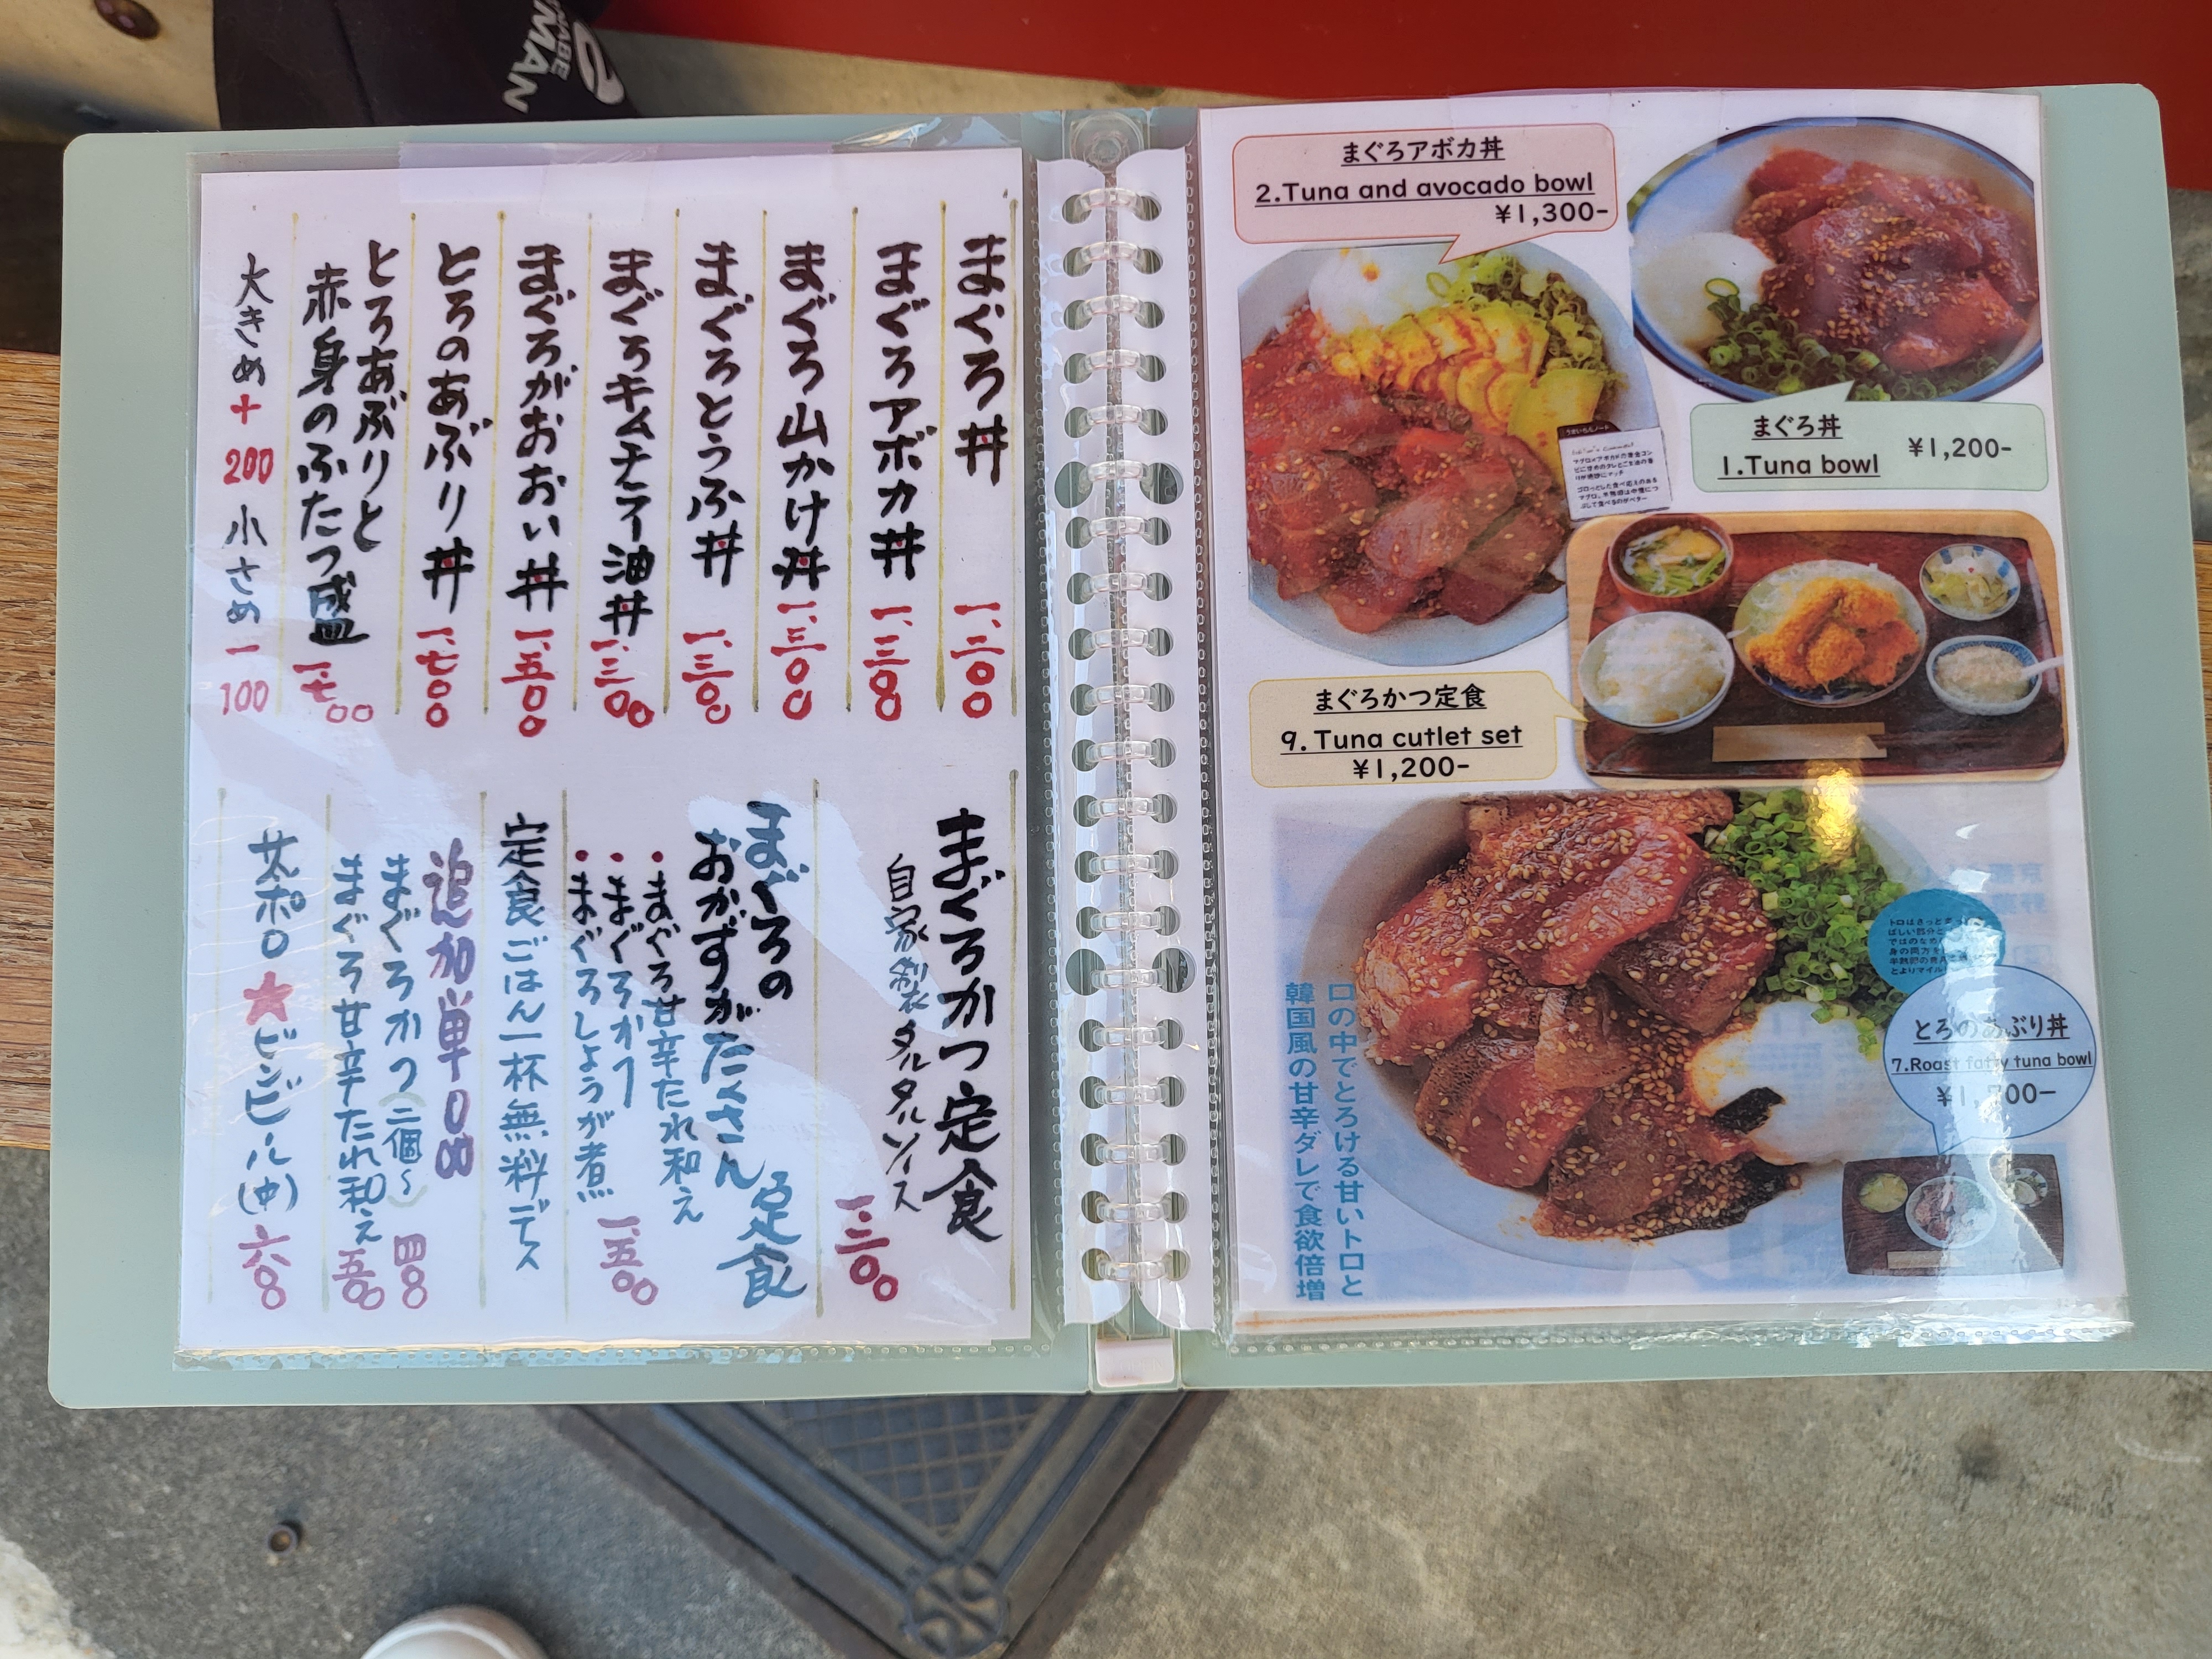 まぐろ丼 一、二〇〇
まぐろアボカ丼 一、三〇〇
まぐろ山かけ丼 一、三〇〇
まぐろとうふ丼 一、三〇〇
まぐろキムチラー油丼 一、三〇〇
まぐろがおおい丼 一、五〇〇
とろのあぶり丼 一、七〇〇
とろあぶりと
赤身のふたつ盛 一、七〇〇
大きめ+200 小さめ-100
まぐろかつ定食
自家製タルタルソース
まぐろの
おかずがたくさん定食
・まぐろ甘辛たれ和え
・まぐろかつ
・まぐろしょうが煮
一、五〇〇
定食ごはん一杯無料デス
追加単品
まぐろかつ(二個~) 四〇〇
まぐろ甘辛たれ和え 五〇〇
サッポロ★ビンビール(中) 六〇〇
まぐろアボカ丼
2.Tuna and avocado bowl
¥1,300-
まぐろ丼
1.Tuna bowl
¥1,200-
まぐろかつ定食
9. Tuna cutlet set
¥1,200-
とろのあぶり丼
7.Roast fatty tuna bowl
¥1,700-
口の中でとろける甘いトロと
韓国風の甘辛ダレで食欲倍増
MAN